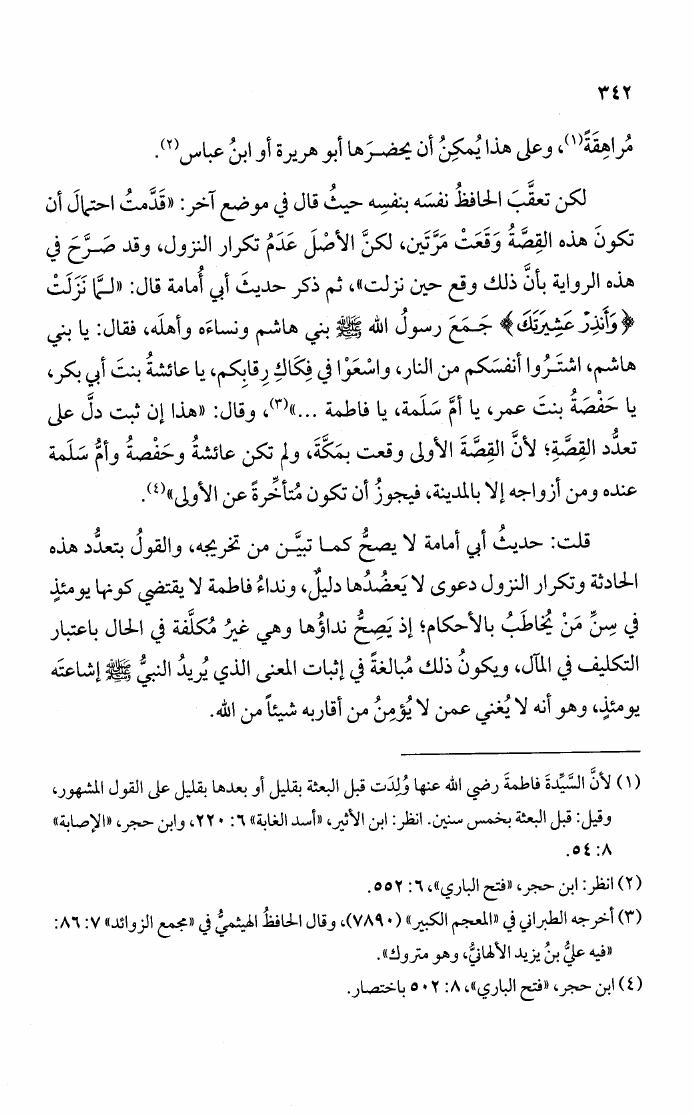 ٣٤٢
مُراهِقَةً(١)، وعلى هذا يُمكِنُ أن يحضـرَها أبو هريرة أو ابنُ عباس(٢).
لكن تعقَّبَ الحافظُ نفسَه بنفسِه حيثُ قال في موضع آخر: «قَدَّمتُ احتمالَ أن
تكونَ هذه القِصَّةُ وَقَعَتْ مَرَّتَين، لكنَّ الأصْلَ عَدَمُ تكرار النزول، وقد صَـرَّحَ في
هذه الرواية بأنَّ ذلك وقع حين نزلت»، ثم ذكر حديثَ أبي أُمامة قال: «لـمَّا نَزَلَتْ
﴿وَأَنذِرْ عَشِيرَتَكَ﴾ جَـمَعَ رسولُ الله ﷺ بني هاشم ونساءَه وأهلَه، فقال: يا بني
هاشم، اشتَـرُوا أنفسَكم من النار، واسْعَوْا في فِكَاكِ رِقابِكم، يا عائشةُ بنتَ أبي بكر،
يا حَفْصَةُ بنتَ عمر، يا أمَّ سَلَمة، يا فاطمة ...»(٣)، وقال: «هذا إن ثبت دلَّ على
تعدُّد القِصَّةِ؛ لأنَّ القِصَّةَ الأولى وقعت بمَكَّةَ، ولم تكن عائشةُ وحَفْصةُ وأمُّ سَلَمة
عنده ومن أزواجه إلا بالمدينة، فيجوزُ أن تكون مُتأخِّرةً عن الأولى»(٤).
قلت: حديثُ أبي أمامة لا يصحُّ كمـا تبيَّـن من تخريجه، والقولُ بتعدُّد هذه
الحادثة وتكرار النزول دعوى لا يَعضُدُها دليلٌ، ونداءُ فاطمة لا يقتضي كونها يومئذٍ
في سِنِّ مَنْ يُخاطَبُ بالأحكام؛ إذ يَصِحُّ نداؤُها وهي غيرُ مُكلَّفة في الحال باعتبار
التكليف في المآل، ويكونُ ذلك مُبالغةً في إثبات المعنى الذي يُريدُ النبيُّ ﷺ إشاعتَه
يومئذٍ، وهو أنه لا يُغني عمن لا يُؤمِنُ من أقاربه شيئاً من الله.
(١) لأنَّ السَّيِّدةَ فاطمةَ رضي الله عنها وُلِدَت قبل البعثة بقليل أو بعدها بقليل على القول المشهور،
وقيل: قبل البعثة بخمس سنين. انظر: ابن الأثير، «أسد الغابة» ٦: ٢٢٠، وابن حجر، «الإصابة»
٨: ٥٤.
(٢) انظر: ابن حجر، «فتح الباري»، ٦: ٥٥٢.
(٣) أخرجه الطبراني في «المعجم الكبير» (٧٨٩٠)، وقال الحافظُ الهيثميُّ في «مجمع الزوائد» ٧: ٨٦:
«فيه عليُّ بنُ يزيد الألهانيُّ، وهو متروك».
(٤) ابن حجر، «فتح الباري»، ٨: ٥٠٢ باختصار.